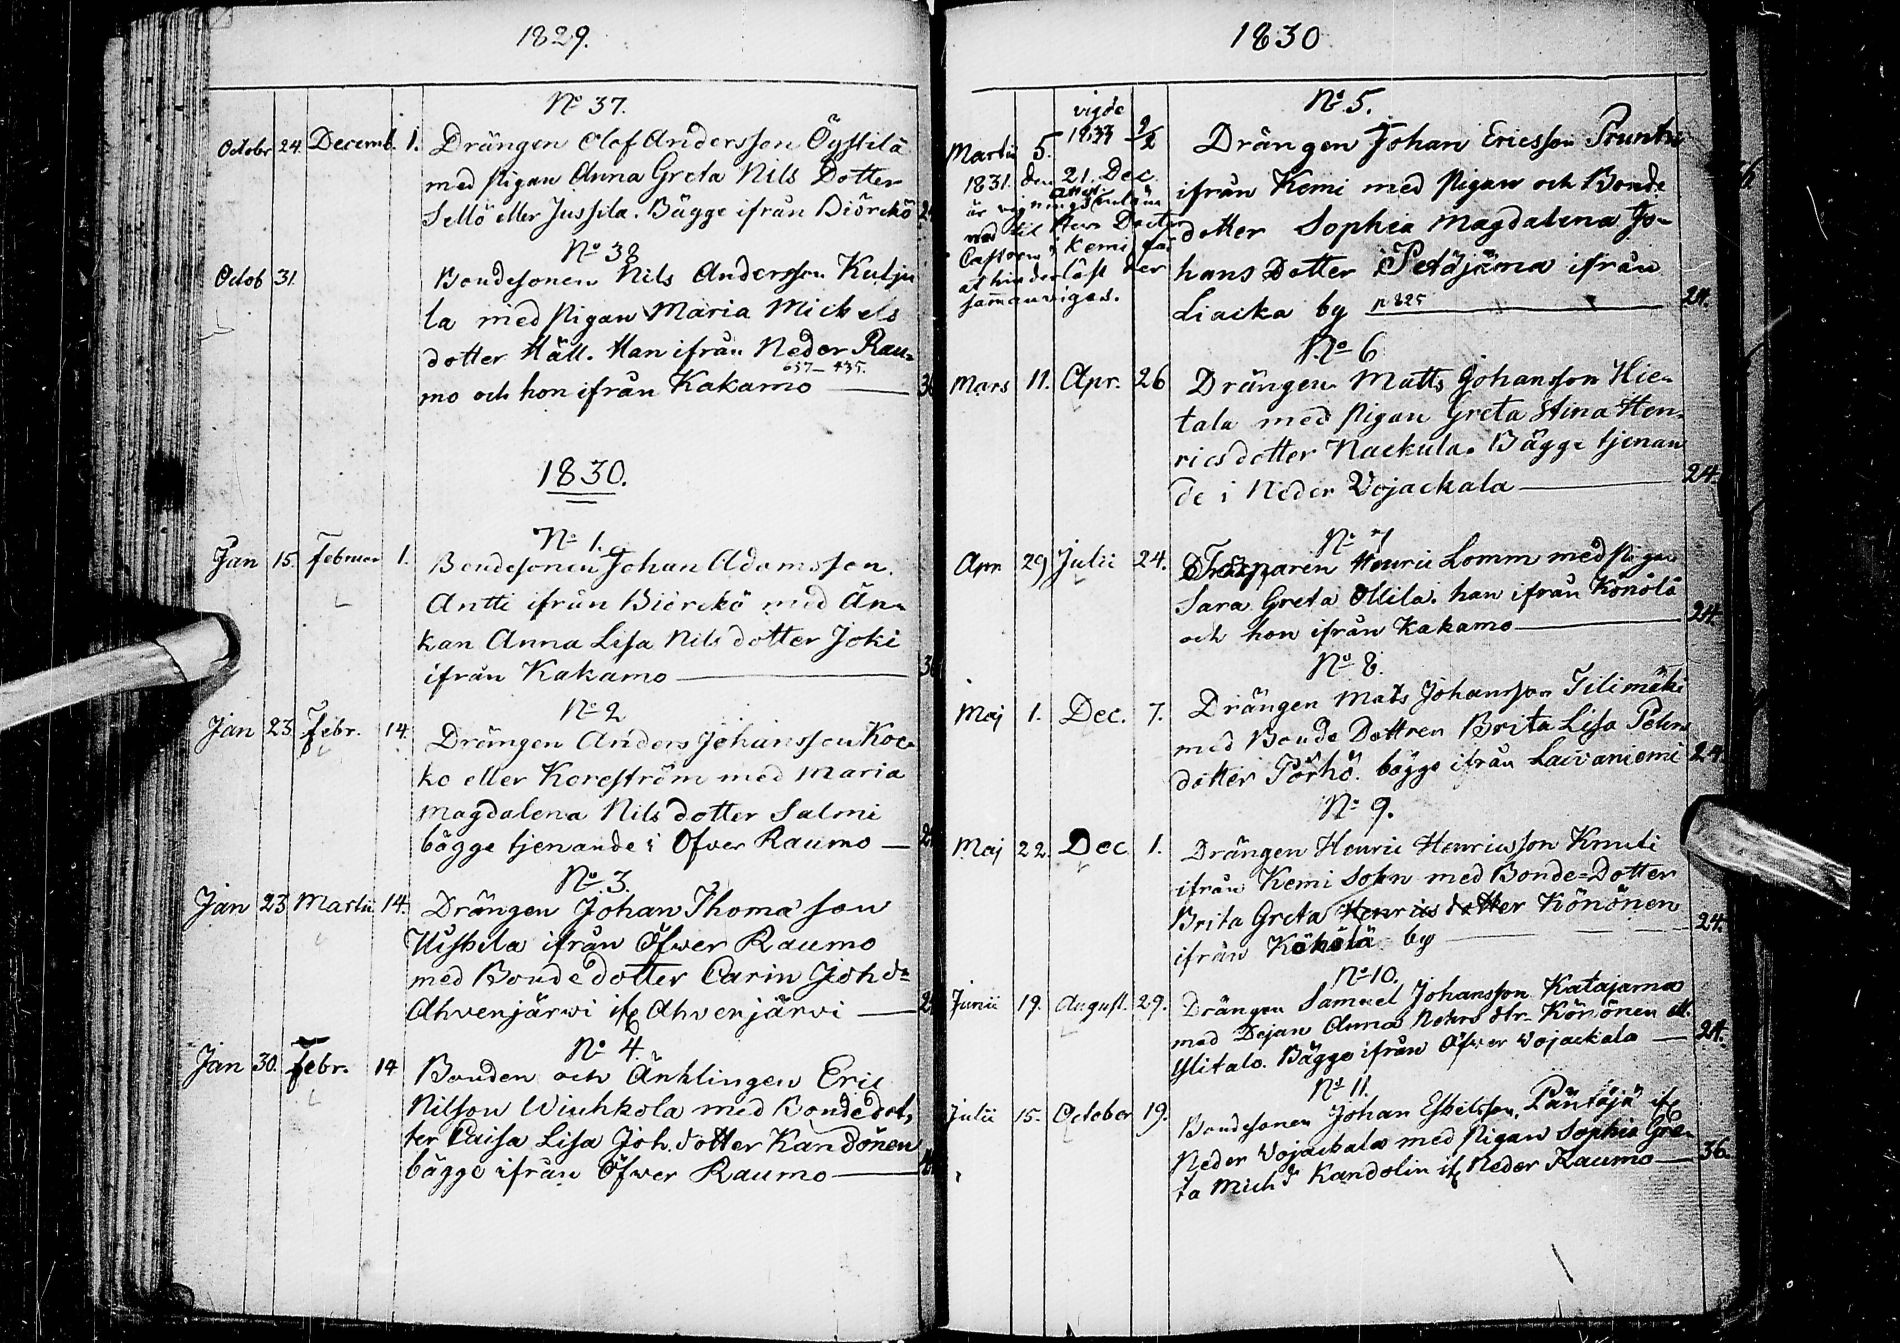 1829.
No 37.
Octobr 24. Decemb. 1. Drängen Olof Andersson Öystilä
med pigan Anna Greta Nils Dotter
Sellö eller Jussila. Bägge ifrån Biörckö
No 38
Octob 31. Bondesonen Nils Andersson Kulju
la med pigan Maria Mickels
dotter Häll. Han ifrån Neder Rau-
657 - 435.
mo och hon ifrån Kakamo
1830.
No 1.
Jan 15. Februar 1. Bondesonen Johan Adamsson
Antti ifrån Biörckö med Än-
kan Anna Lisa Nils dotter Joki
ifrån Kakamo
No 2
Jan 23 Febr. 14. Drängen Anders Johansson Koc-
ko eller Korsström med Maria
Magdalena Nils dotter Salmi
bägge tjenande i Öfver Raumo
No 3.
Jan 23 Martii 14. Drängen Johan Thomasson
ifrån Öfwer Raumo
med Bonde dotter Carin Joh dr
Ahvenjärwi ifr Ahvenjärvi
No 4.
Jan 30. Febr. 14 Bonden och Änklingen Eric
Nilsson Wiuhkola med Bonde dot,
ter Caisa Lisa Joh. dotter Kandönen
bägge ifrån Öfwer Raumo
1830
vigde
1833 9/2
No 5.
Martii 5. Drängen Johan Ericsson Pruntu
1831. den 21. Dec. ifrån Kemi med pigan och Bonde
attest
är vignings
med till Herr Doctor dotter Sophia Magdalena Jo-
Castren i Kemi
at hinderlöst der hans Dotter Petäjäma ifrån
sammanvigas.
Liacka by p 825 24.
No 6
Mars 11. Apr. 26 Drängen Matts Johansson Hie-
tala med pigan Greta Stina Hen-
ricsdotter Nackula. Bägge tjenan
de i Neder Vojackala 24.
No 7
Apr. 29 Julii 24. Henric Lomm med pigan
Sara Greta Ollila. han ifrån Könölä
och hon ifrån Kakamo 24.
No 8.
Maj 1. Dec. 7. Drängen Mats Johansson Tilimäki
med Bonde Dottren Brita Lisa Pehrs
dotter Pörhö. bägge ifrån Laivaniemi 24.
No 9.
Maj 22. Dec 1. Drängen Henric Henricsson Knuti
ifrån Kemi Sokn med Bonde-Dotter
Brita Greta Henrics dotter Könönen 24.
ifrån by
No 10.
Junii 19. August. 29. Drängen Samuel Johansson Katajama
med Dejan Anna dtr. Könönen ell.
Ylitalo. Bägge ifrån Öfwer Wojackala 24.
No 11.
Julii 15. October 19. Bondesonen Johan Eskilsson Päntäjä ifr
Neder Vojackala med pigan Sophia Gre-
ta Mich d Kandolin ifr Neder Raumo 36.